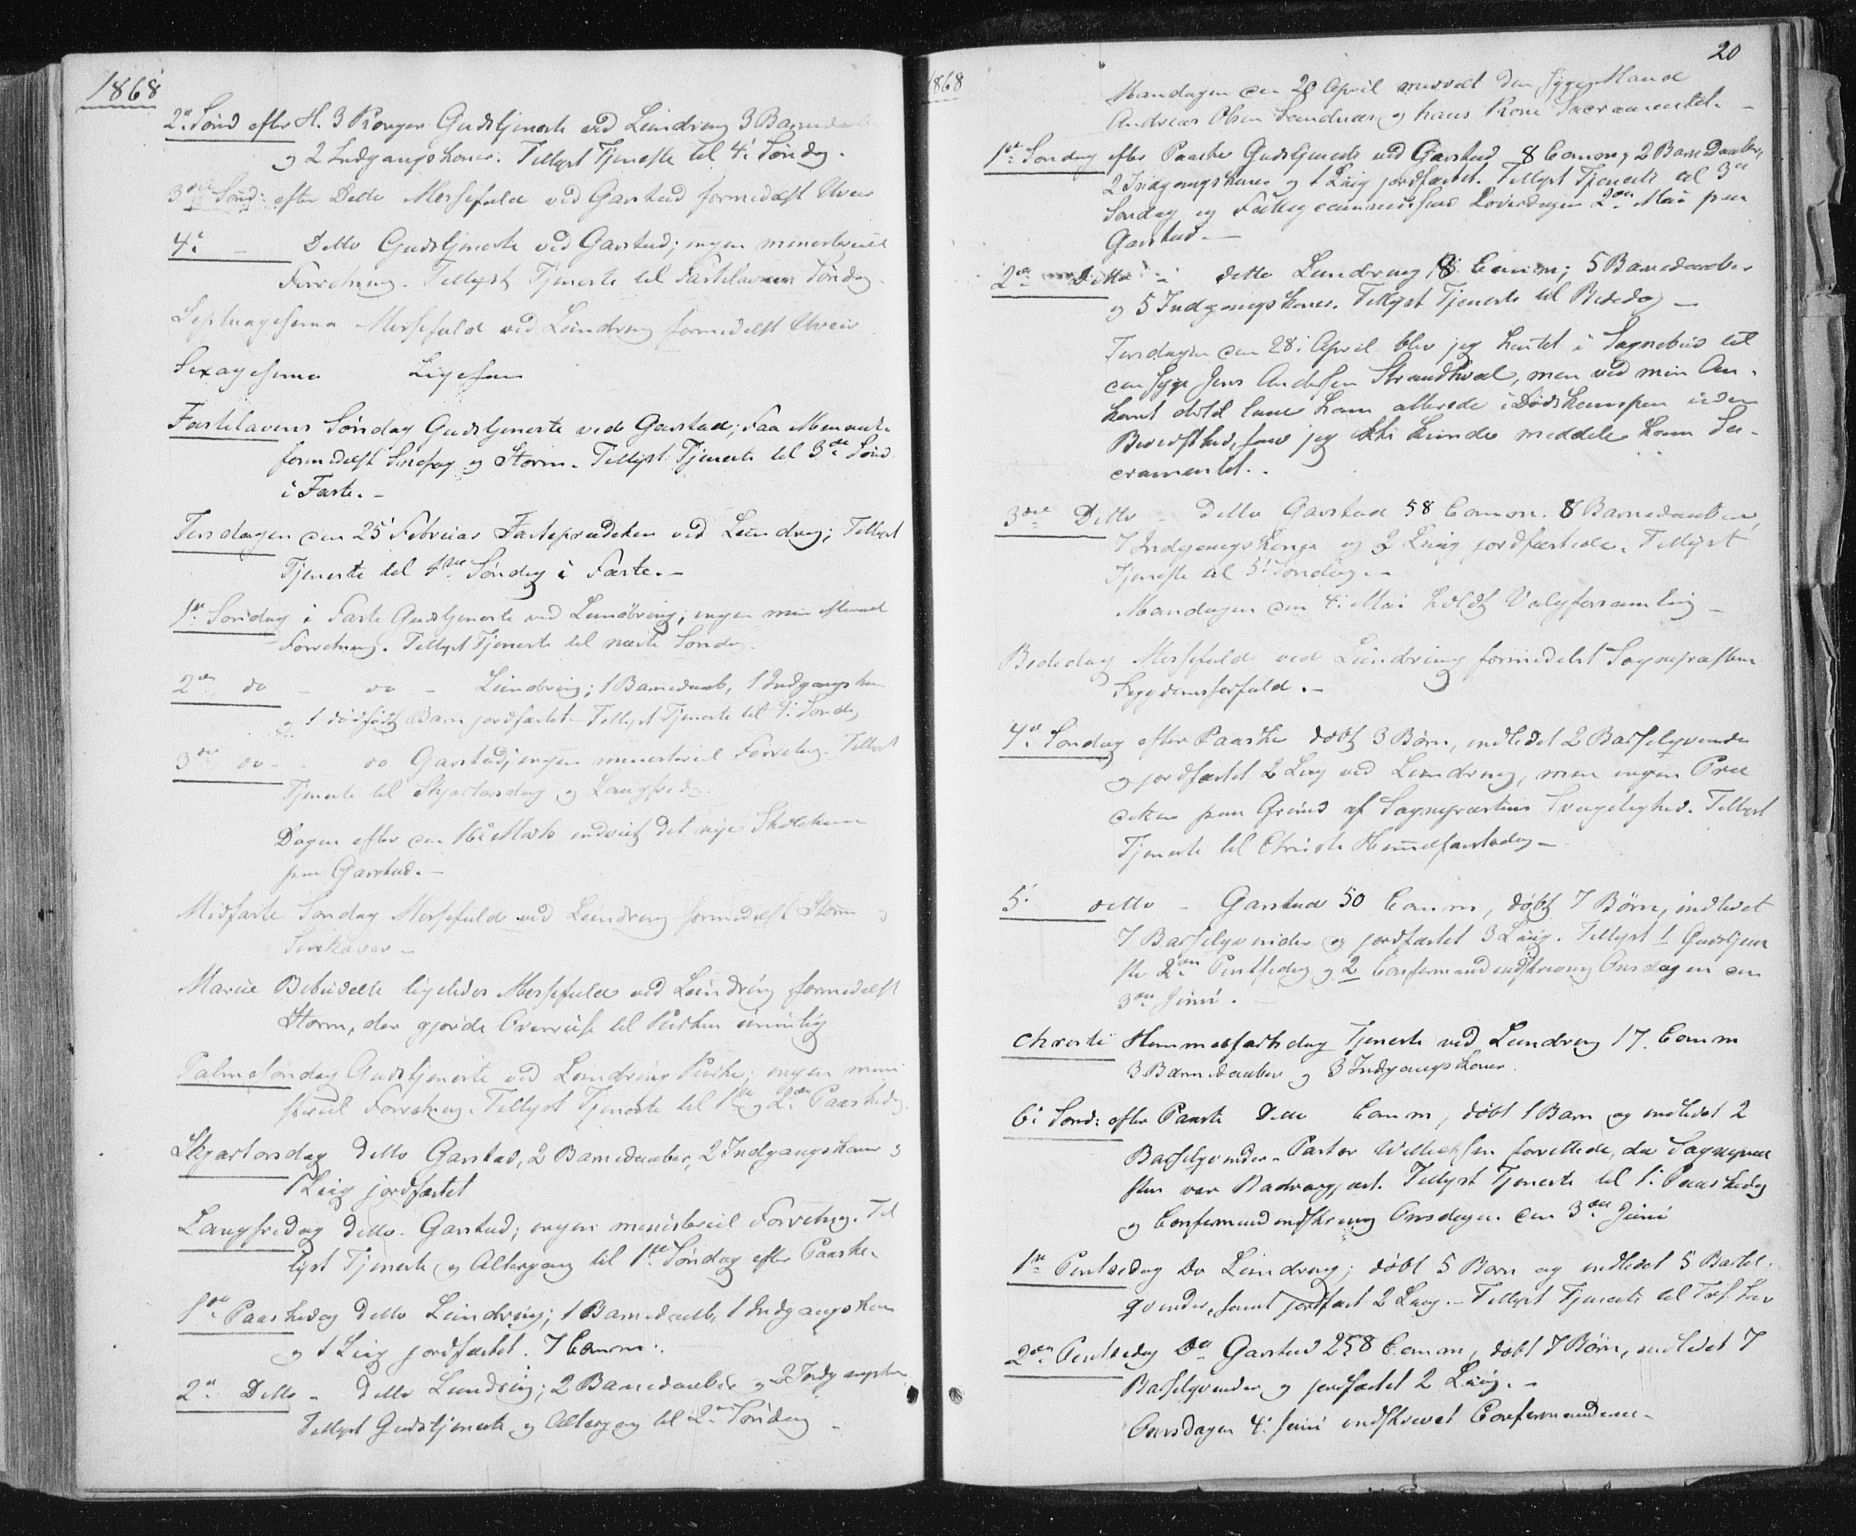 1868
2den Sønd efter H. 3 Konger Gudstjeneste ved Leundring 3 Barnedaab
og 2 Indgangskoner. Tillyst Tjeneste til 4. Søndag.
3die Sønd: efter Ditto Messefald ved Garstad formedelst Uveir
4. – Ditto Gudstjeneste ved Garstad; ingen ministeriel
Forretning. Tillyst Tjeneste til Fastelavens Søndag.
Septuagesima Messefald ved Leundring formedelst Uveir.
Sexagesima Ligesom
Fastelavens Søndag Gudstjeneste ved Garstad; faa Mennesker
formedelst Snefog og Storm. Tillyst Tjeneste til 3die Sønd
i Faste. –
Tirsdagen den 25 Februar Fasteprædiken ved Leundring; Tillyst
Tjeneste til 1ste Søndag i Faste. –
1ste Søndag i Faste Gudstjeneste ved Leundring; ingen
Forretning. Tillyst Tjeneste til næste Søndag.
2den do – do – Leundring; 1 Barnedaab, 1 Indgangskone
og 1 dødfødt Barn jordfæstet – Tillyst Tjeneste til 4. Søndag
3die do – do Garstad; ingen ministeriel Forretning. Tillyst
Tjeneste til Skjærtorsdag og Langfredag.
Dagen efter den 16 Marts indviet det nye Skolehuus
paa Garstad. –
Midfaste Søndag Messefald ved Leundring formedelst Storm og
Snekaver –
Mariæ Bebudelse ligeledes Messefald ved Leundring formedelst
Storm, der gjorde Overreise til Kirken umulig
Palme Søndag Gudstjeneste ved Leundring Kirke; ingen mini
steriel Forretning. Tillyst Tjeneste til 1ste og 2den Paaskedag.
Skjærtorsdag Ditto Garstad, 2 Barnedaaber, 2 Indgangskoner og
1 Liig jordfæstet
Langfredag ditto. Garstad; ingen ministeriel Forretng. Til
lyst Tjeneste og Altergang til 1ste Søndag efter Paaske.
1ste Paaskedag ditto Leundring; 1 Barnedaab, 1 Indgangskone
og 1 Liig jordfæstet. 7 Comm.
2den Ditto – ditto Leundring; 2 Barnedaaber og 2 Indgangskon
Tillyst Gudstjeneste og Altergang til 2den Søndag –
1868
20
Mandagen den 20 April meddelt den syge Mand
Andreas Olsen Sandnæs og hans Kone Sacramentet. –
1ste Søndag efter Paaske Gudstjeneste ved Garstad 8 Comm, 2 Barnedaaber,
2 Indgangskoner og 1 Liig jordfæstet. Tillyst Tjeneste til 3die
Søndag og Løverdagen 2den Mai paa
Garstad. –
2den Ditto – ditto Leundring, 8 Comm; 5 Barnedaaber
og 5 Indgangskoner. Tillyst Tjeneste til Bededag –
Tirsdagen den 28. April blev jeg hentet i Sognebud til
den syge Jens Andersen Strandhval, men ved min An-
komst didd laae ham allerede i Dødskampen uden
Bevidsthed, saa jeg ikke kunde meddele ham Sa-
cramentet. –
3die Ditto – ditto Garstad 58 Comm. 8 Barnedaaber,
7 Indgangskoner og 2 Liig jordfæstede. Tillyst
Tjeneste til 5. Søndag. –
Mandagen den 4. Mai holdt Valgforsamling –
Bededag Messefald ved Leundring formedelst Sognepræstens
Sygdomsforfald. –
4de Søndag efter Paaske døbt 3 Børn, indledet 2 Barselqvinder
og jordfæstet 2 Liig ved Leundring, men ingen Præ
diken paa Grund af Sognepræstens Svagelighed. Tillyst
Tjeneste til Christi Himmelfartsdag –
5. ditto – Garstad 50 Comm, døbt 7 Børn, indledet
7 Barselqvinder og jordfæstet 3 Liig. Tillyst 1 Gudstjene
ste 2den Pintsedag og 2 Confirmandindskrivning Onsdagen den
3die Juni. –
Christi Himmelfartsdag Tjeneste ved Leundring 17. Comm
3 Barnedaaber og 3 Indgangskoner.
6. Sønd: efter Paaske Ditto Comm, døbt 1 Barn og indledet 2
Barselqvinder. Pastor forrettede, da Sognepræ
sten var. Tillyst Tjeneste til 1. Paaskedag
og Confirmandindskrivning Onsdagen den 3die Juni
1ste Pintsedag Do Leundring; døbt 5 Børn og indledet 5 Barsel-
qvinder, samt jordfæst 2 Liig. – Tillyst Tjeneste til
2den Pintsedag Do Garstad 258 Comm, døbt 7 Børn, indledet 7
Barselqvinder og jordfæstet 2 Liig. –
Onsdagen 4. Juni indskrevet Confirmanderne –